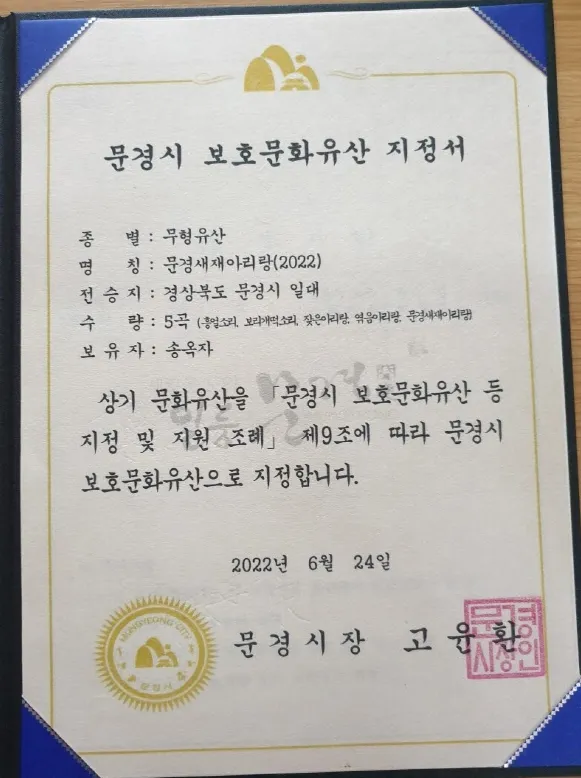 문경시 보호문화유산 지정서
종 별 : 무형유산
명 칭 : 문경새재아리랑(2022)
전 승 지 : 경상북도 문경시 일대
수 량 : 5곡 (흥얼소리, 보리개떡소리, 잦은아리랑, 엮음아리랑, 문경새재아리랑)
보 유 자 : 송옥자
상기 문화유산을 「문경시 보호문화유산 등
지정 및 지원 조례」 제9조에 따라 문경시
보호문화유산으로 지정합니다.
2022년 6월 24일
MUNGYEONG CITY
문경시
문경시장 고윤환
문경
시장인